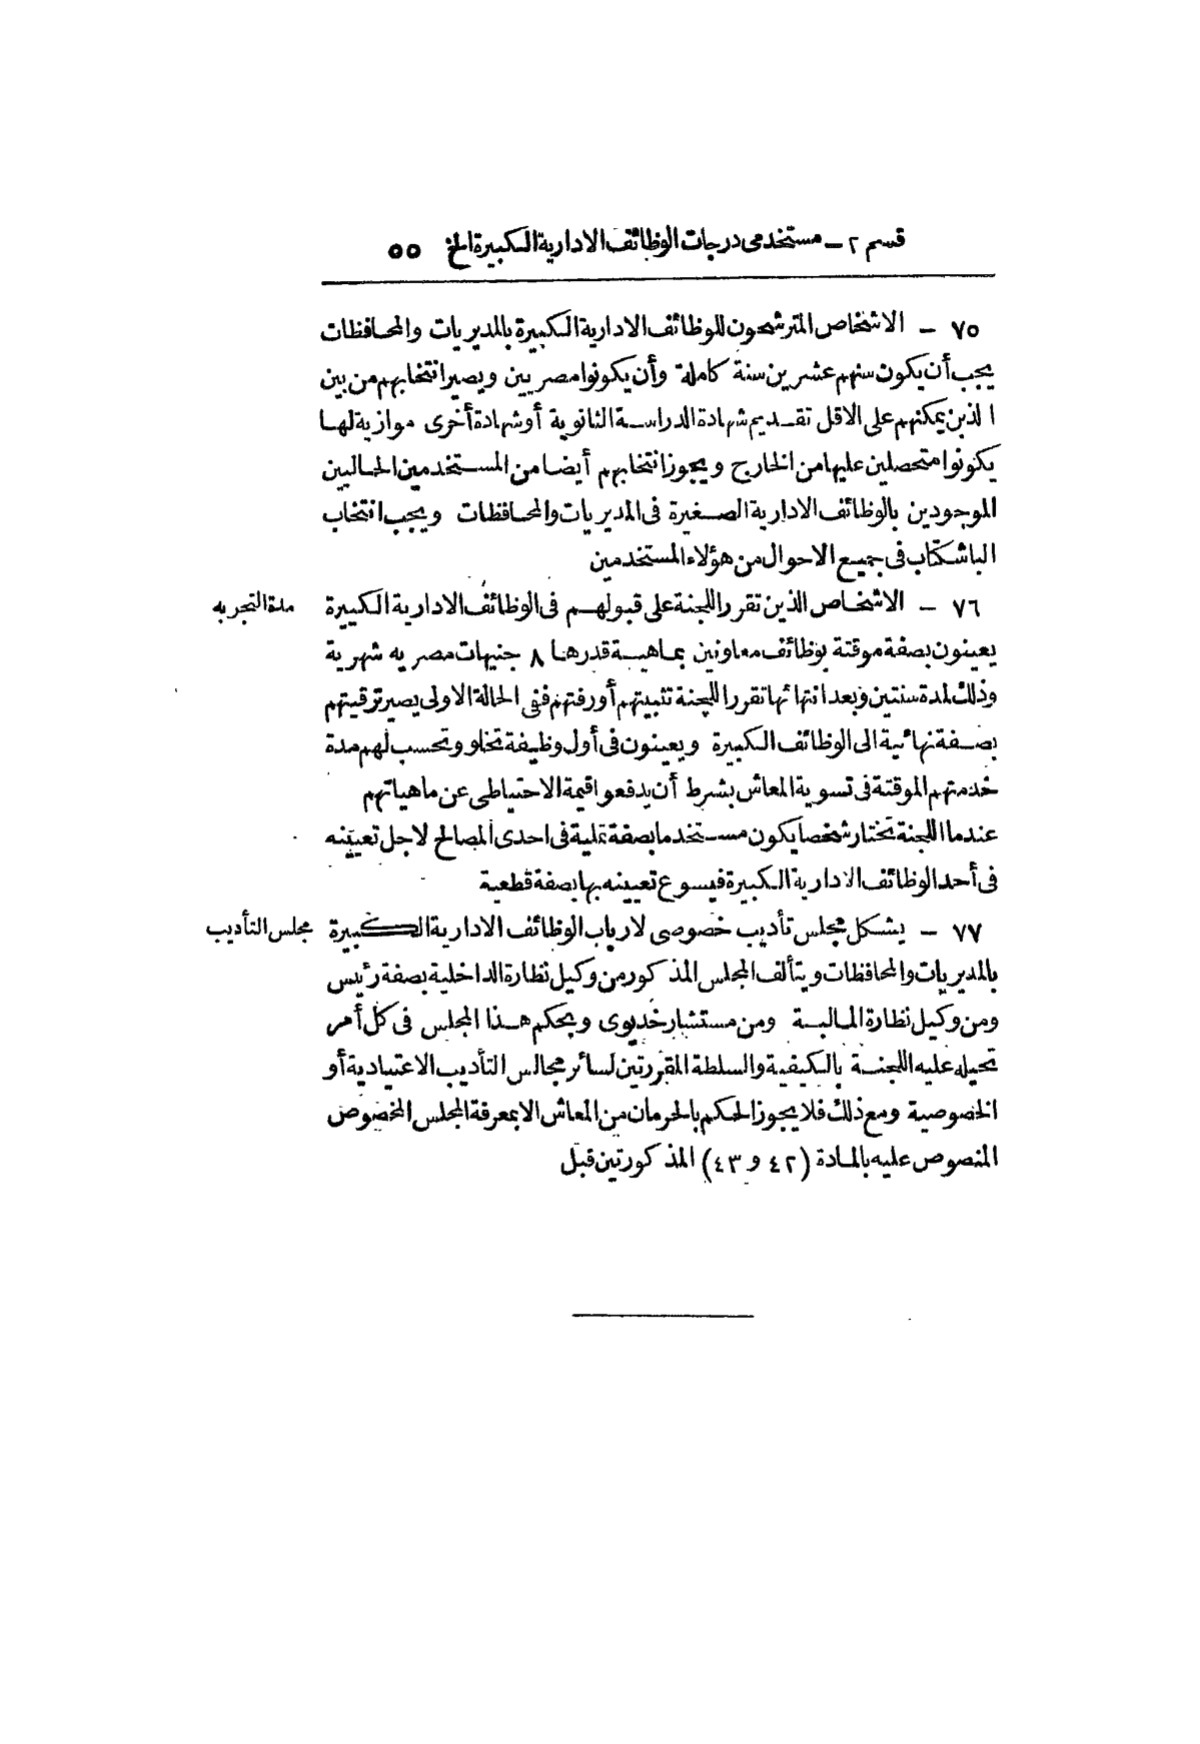 قسم ٢ – مستخدمى درجات الوظائف الادارية الكبيرة الخ ٥٥
٧٥ – الاشخاص المترشحون للوظائف الادارية الكبيرة بالمديريات والمحافظات
يجب أن يكون سنهم عشرين سنة كاملة وأن يكونوا مصريين ويصير انتخابهم من بين
الذين يمكنهم على الاقل تقديم شهادة الدراسة الثانوية أو شهادة أخرى موازية لها
يكونوا متحصلين عليها من الخارج ويجوز انتخابهم أيضا من المستخدمين الحاليين
الموجودين بالوظائف الادارية الصغيرة فى المديريات والمحافظات ويجب انتخاب
الباشكتاب فى جميع الاحوال من هؤلاء المستخدمين
مدة التجربه
٧٦ – الاشخاص الذين تقرر اللجنة على قبولهم فى الوظائف الادارية الكبيرة
يعينون بصفة موقتة بوظائف معاونين بماهية قدرها ٨ جنيهات مصريه شهرية
وذلك لمدة سنتين وبعد انتهائها تقرر اللجنة تثبيتهم أو رفتهم ففى الحالة الاولى يصير ترقيتهم
بصفة نهائية الى الوظائف الكبيرة ويعينون فى أول وظيفة تخلو وتحسب لهم مدة
خدمتهم الموقتة فى تسوية المعاش بشرط أن يدفعوا قيمة الاحتياطى عن ماهياتهم
عندما اللجنة تختار شخصا يكون مستخدما بصفة عملية فى احدى المصالح لاجل تعيينه
فى أحد الوظائف الادارية الكبيرة فيسوغ تعيينه بها بصفة قطعية
مجلس التأديب
٧٧ – يشكل مجلس تأديب خصوصى لارباب الوظائف الادارية الكبيرة
بالمديريات والمحافظات ويتألف المجلس المذكور من وكيل نظارة الداخلية بصفة رئيس
ومن وكيل نظارة المالية ومن مستشار خديوى ويحكم هذا المجلس فى كل أمر
تحيله عليه اللجنة بالكيفية والسلطة المقررتين لسائر مجالس التأديب الاعتيادية أو
الخصوصية ومع ذلك فلا يجوز الحكم بالحرمان من المعاش الا بمعرفة المجلس المخصوص
المنصوص عليه بالمادة (٤٢ و ٤٣) المذكورتين قبل